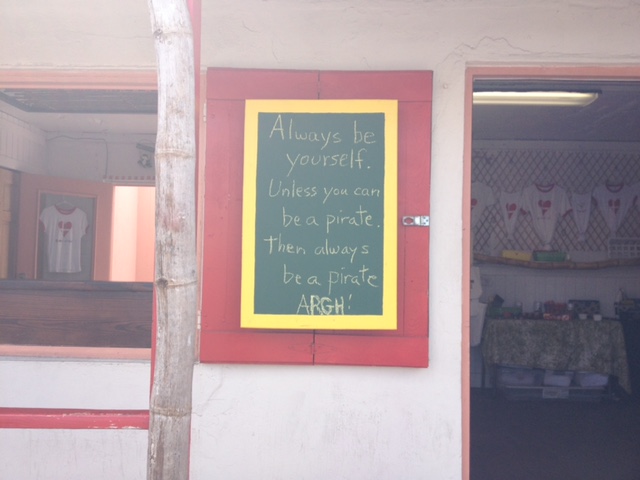 Always be
yourself.
Unless you can
be a pirate.
Then always
be a pirate
ARGH!